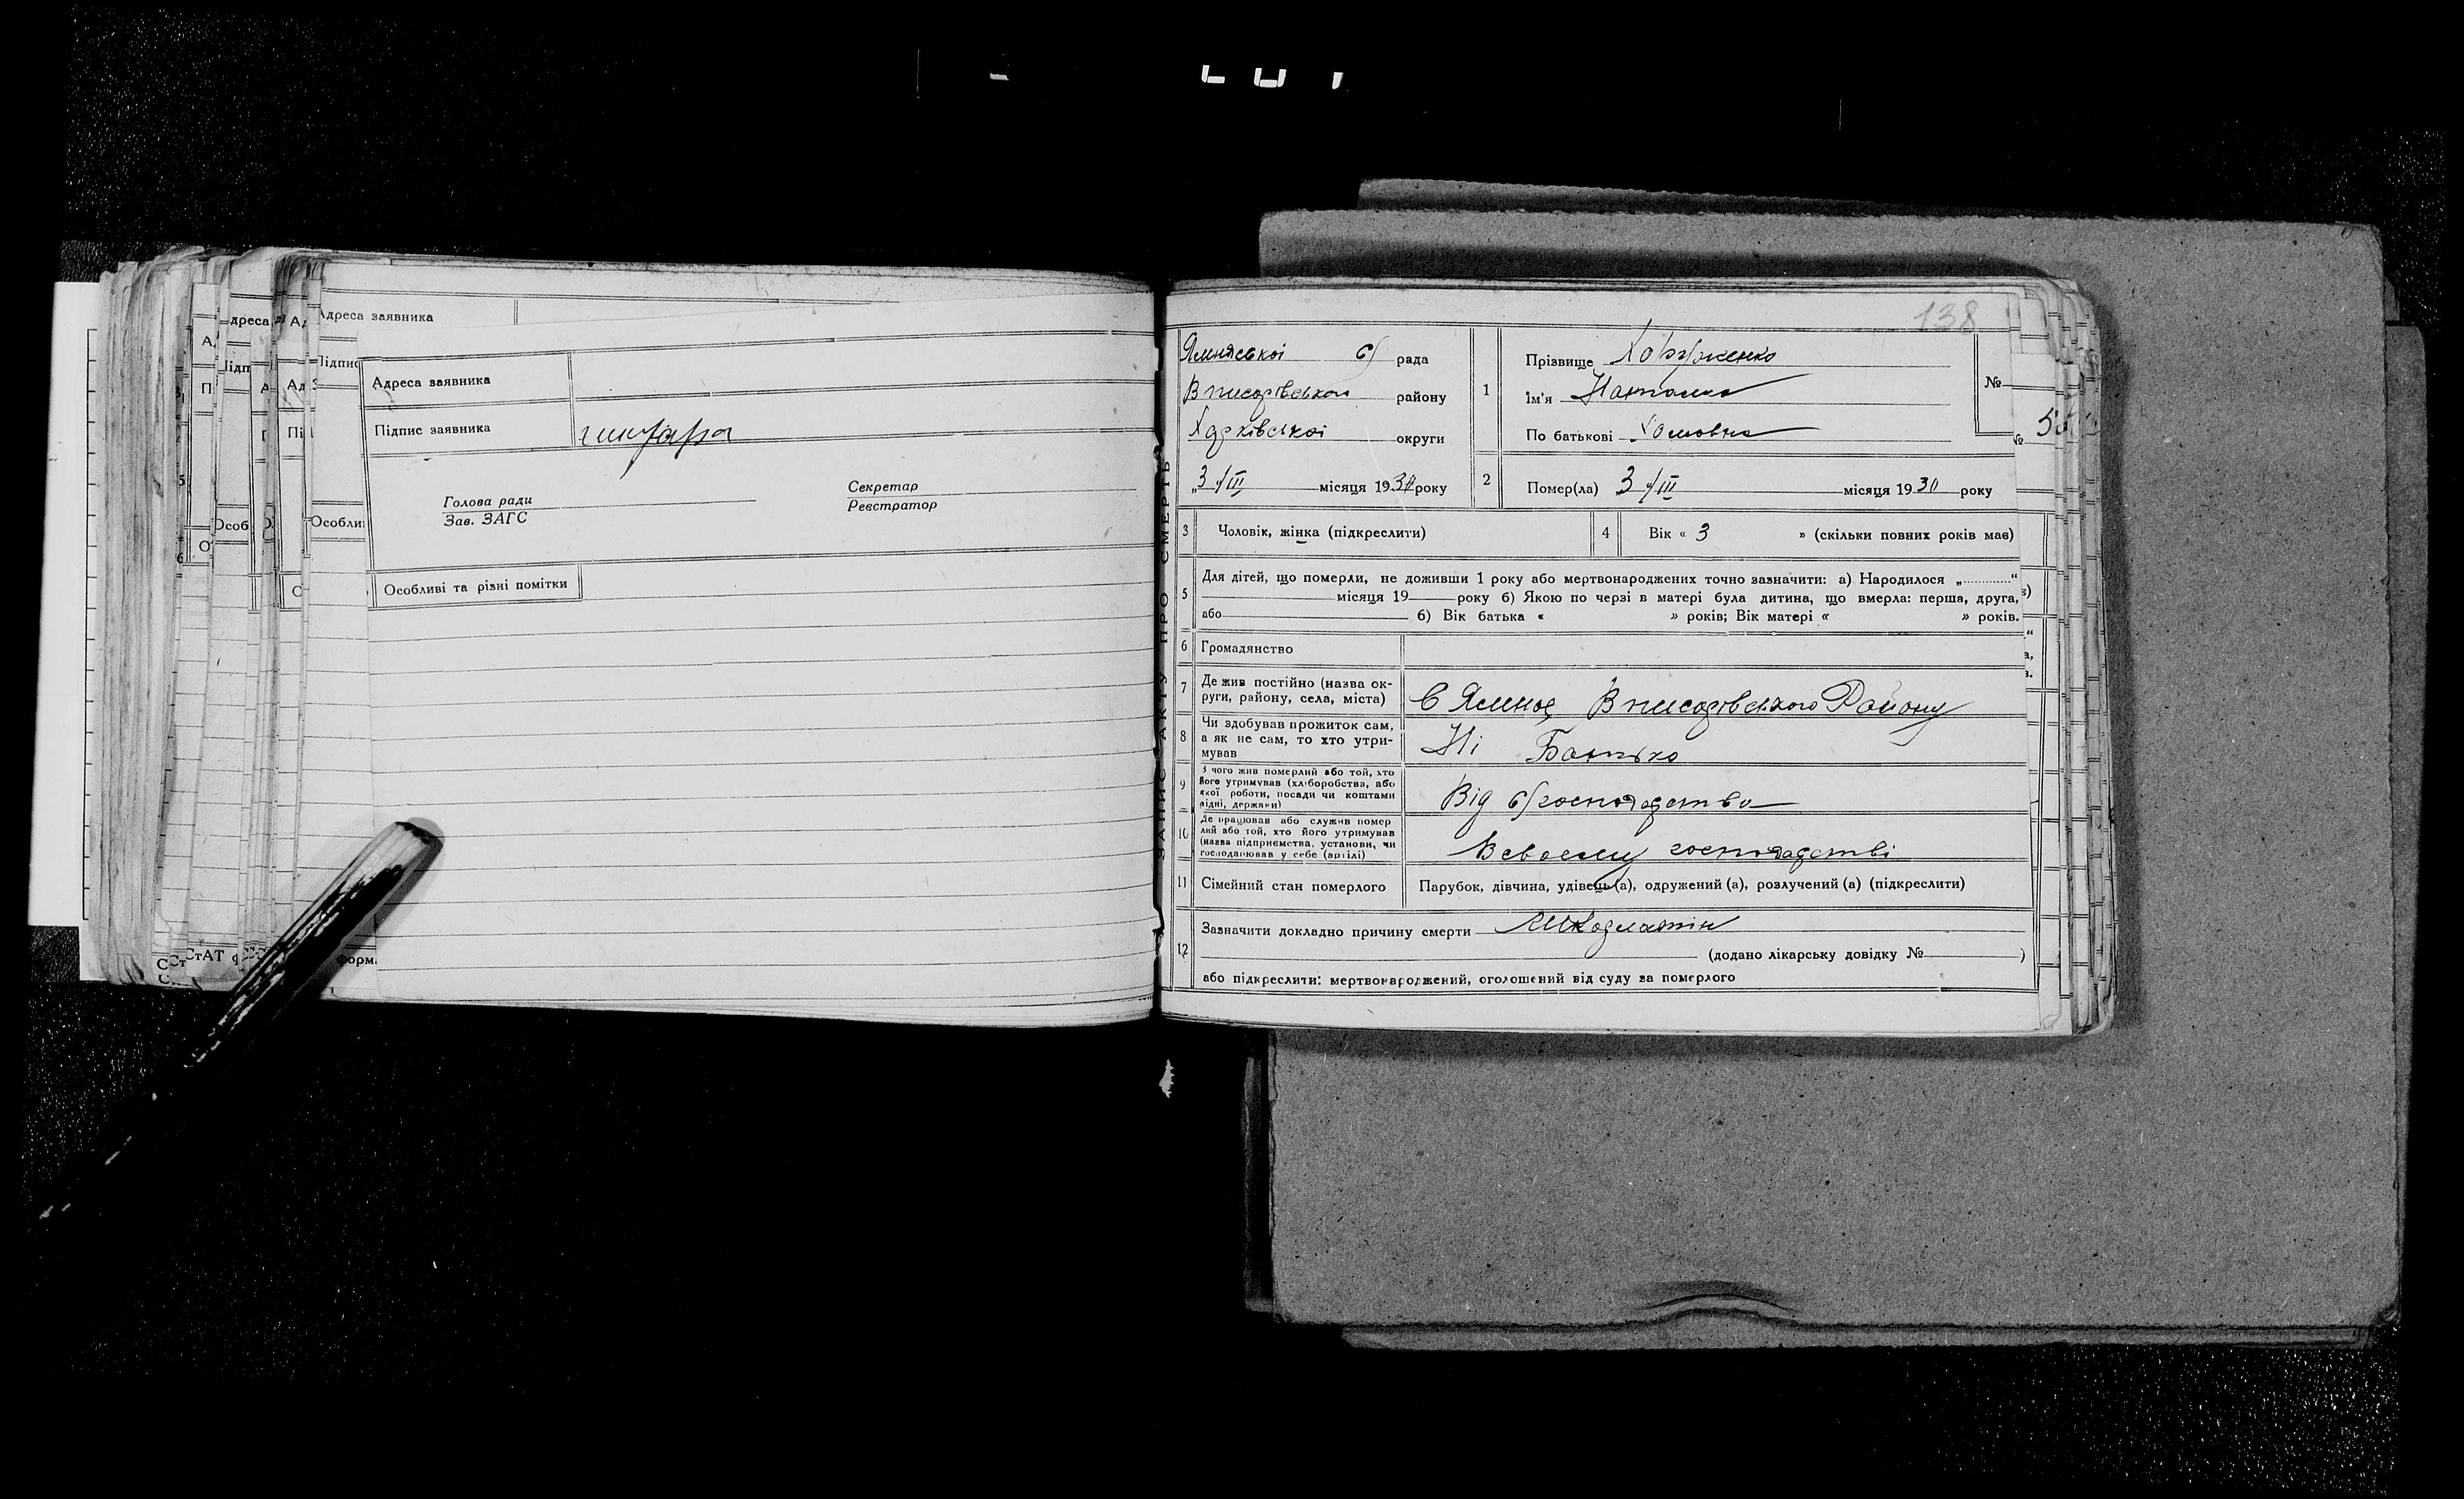 Адреса заявника
Адреса заявника
Підпис заявника
Голова ради
Зав. ЗАГС
Секретар
Реєстратор
Особливі та різні помітки
ЗАПИС АКТУ ПРО СМЕРТЬ
138
рада
району
Харківської округи
„3/III місяця 1930 року
1
Прізвище Хоруженко
Ім'я
По батькові Хомовна
№
2
Помер(ла) 3/III місяця 1930 року
3 Чоловік, жінка (підкреслити)
4 Вік « 3 » (скільки повних років має)
5 Для дітей, що померли, не доживши 1 року або мертвонароджених точно зазначити: а) Народилося „............“
місяця 19 року б) Якою по черзі в матері була дитина, що вмерла: перша, друга,
або б) Вік батька « » років; Вік матері « » років.
6 Громадянство
7 Де жив постійно (назва округи, району, села, міста) Району
8 Чи здобував прожиток сам,
а як не сам, то хто утримував
Ні Батько
9 З чого жив померлий або той, хто
його утримував (хліборобства, або
якої роботи, посади чи коштами
рідні, держави)
Від с/господарства
10 Де працював або служив помер
лий або той, хто його утримував
(назва підприємства, установи, чи
господарював у себе (артілі)
В своєму господарстві
11 Сімейний стан померлого Парубок, дівчина, удівець(а), одружений (а), розлучений (а) (підкреслити)
12 Зазначити докладно причину смерти Шкодлятін
(додано лікарську довідку № )
або підкреслити: мертвонароджений, оголошений від суду за померлого